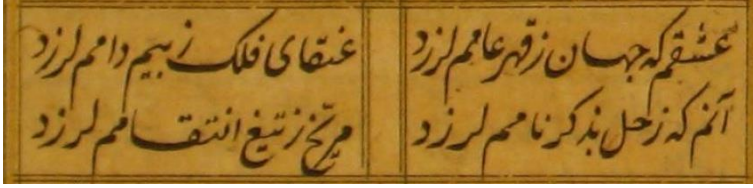 عشقم که جهان ز قهر عامم لرزد
عنقای فلک ز بیم دامم لرزد
آنم که زحل بذکر نامم لرزد
مریخ ز تیغ انتقامم لرزد